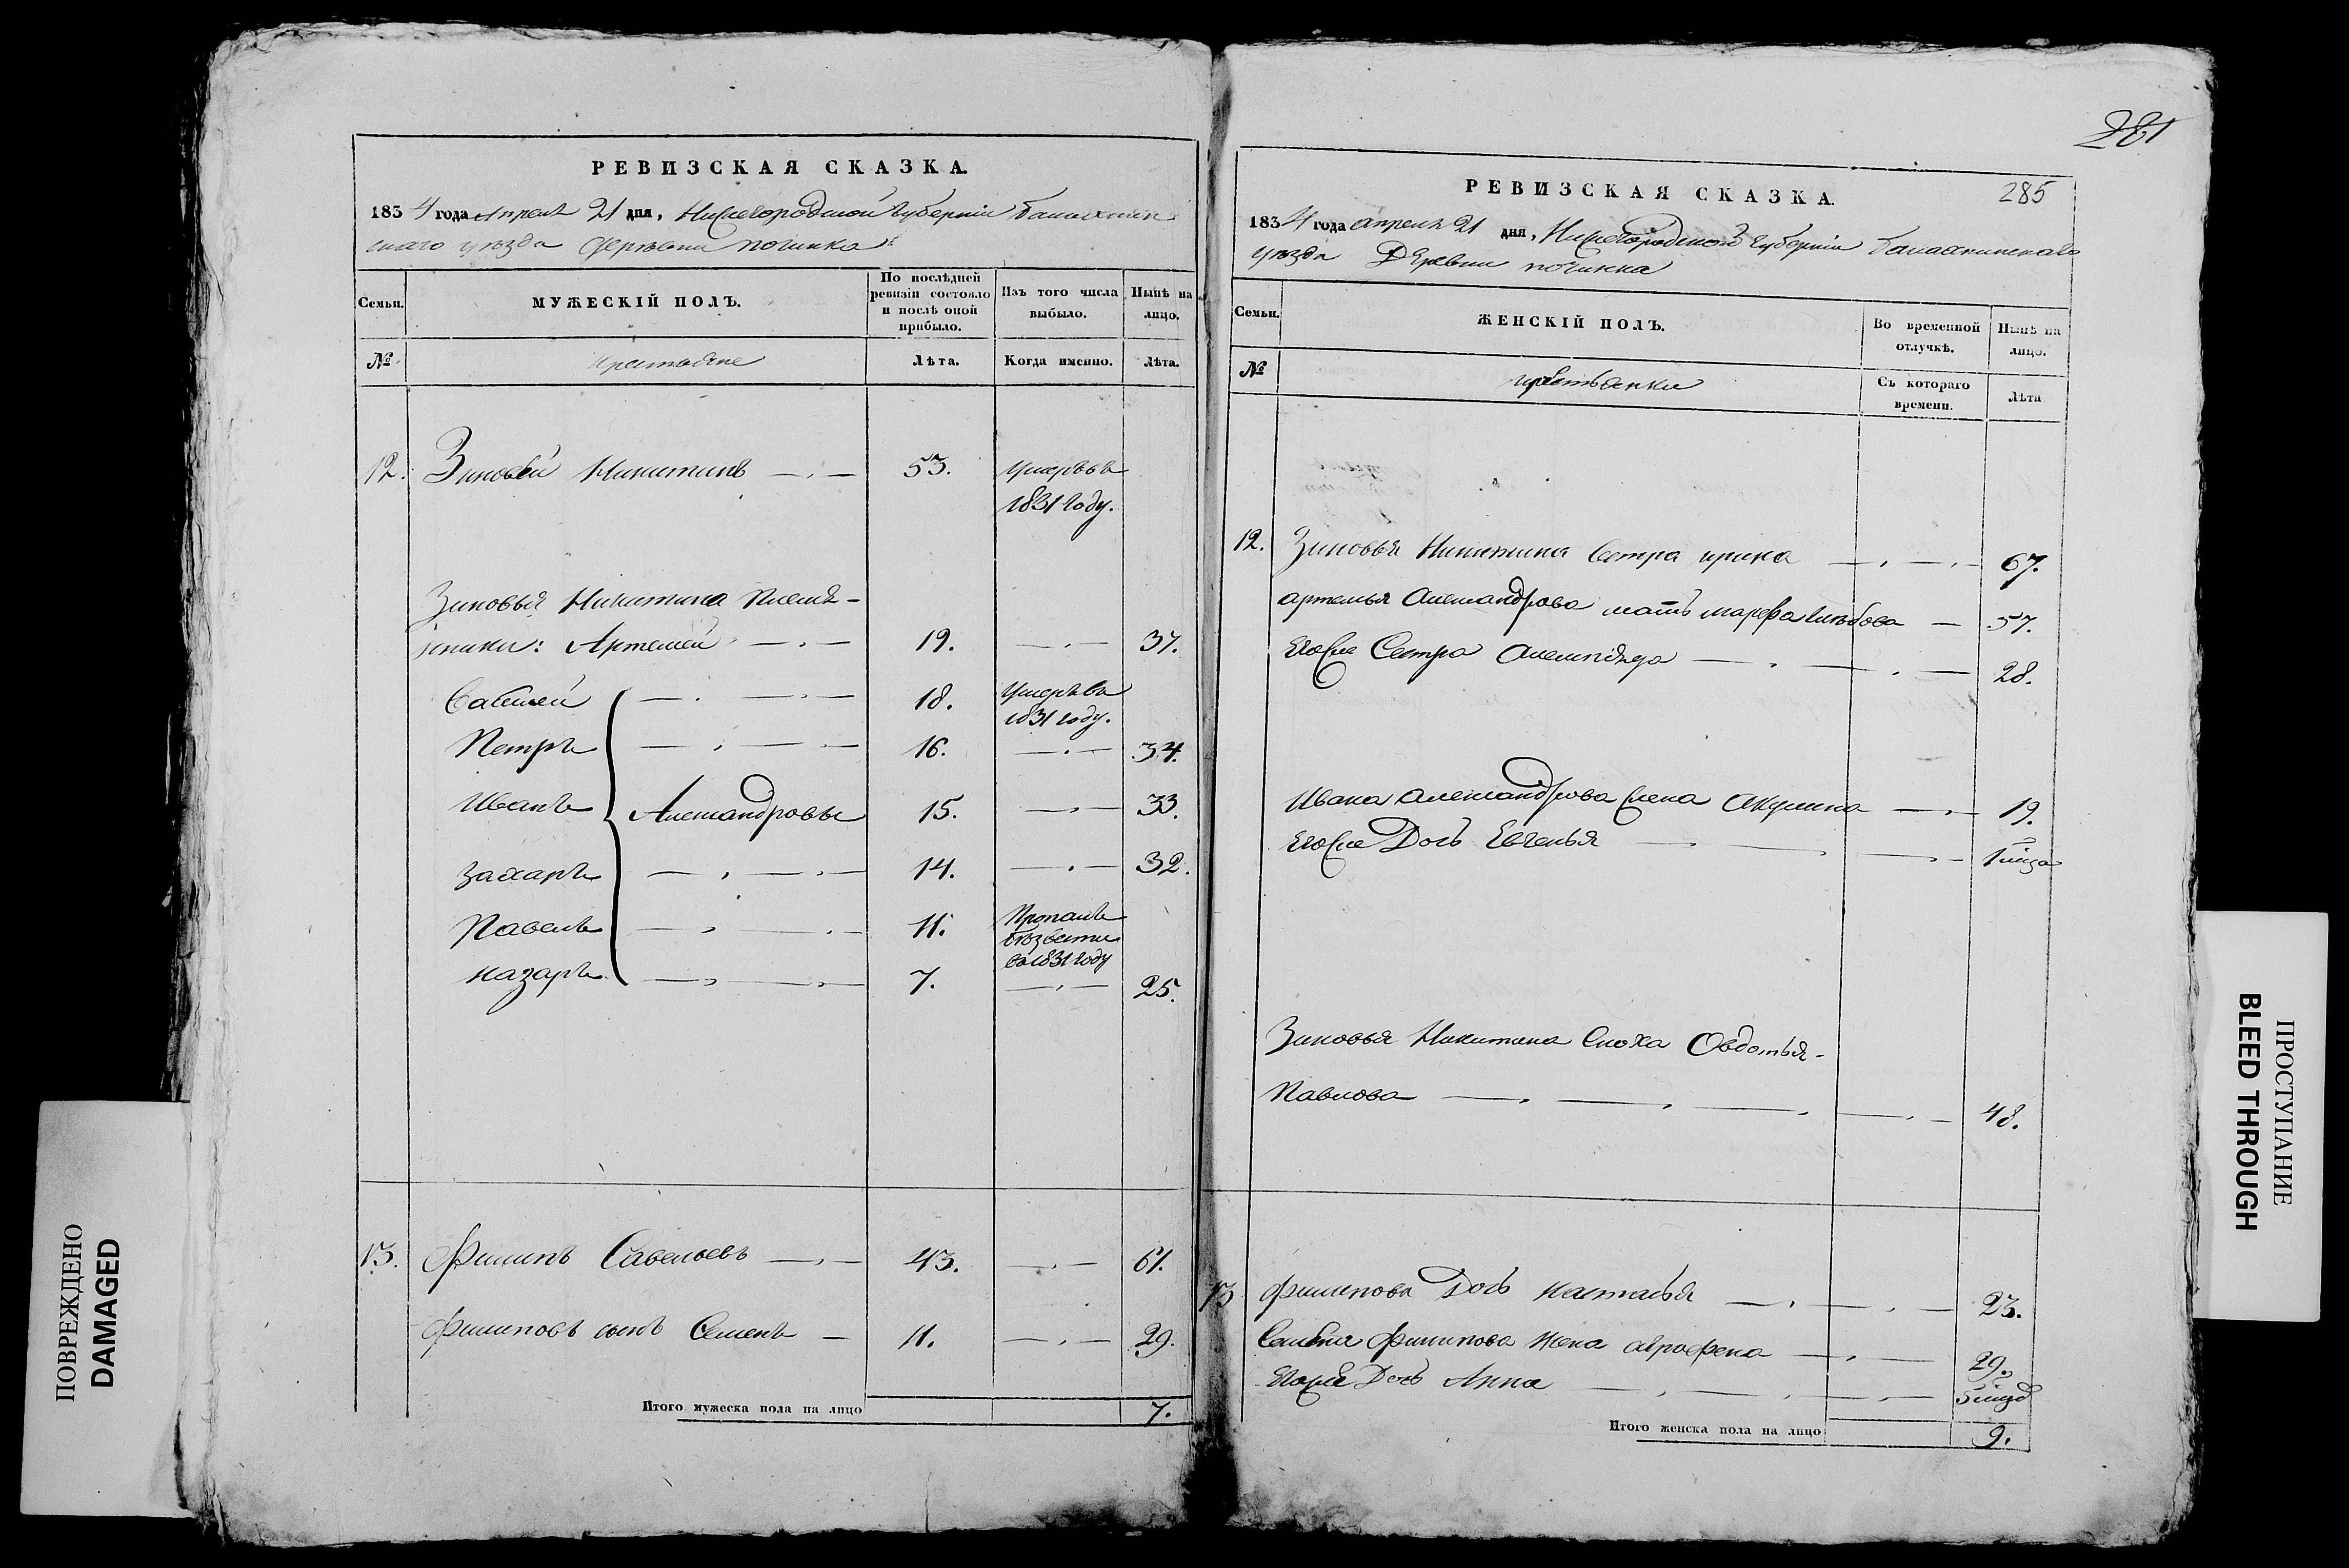 РЕВИЗСКАЯ СКАЗКА.
1834 года Апреля 21 дня, Нижегородской губернии Балахнин
скаго уезда Деревни починка
Семьи.
МУЖЕСКІЙ ПОЛЪ.
По послѣдней ревизіи состояло и послѣ оной прибыло.
Изъ того числа выбыло.
Нынѣ на лицо.
№
Крестьяне
Лѣта.
Когда именно.
Лѣта.
12. Зиновей Никитинъ 53. умеръ въ
1831 году.
Зиновья Никитина племя-
нники: Артемей 19. 37.
Савелей 18. Умеръ въ
1831 году.
Петръ 16. 34.
Иванъ 15. 33.
Александровы
Захаръ 14. 32.
Павелъ 11. Пропалъ
безвести
въ 1831 году
Назаръ 7. 25.
13. Филипъ Савельевъ 43. 61.
Филиповъ сынъ Семенъ 11. 29.
Итого мужеска пола на лицо 7.
281
РЕВИЗСКАЯ СКАЗКА.
285
1834 года апреля 21 дня, Нижегородской губернии Балахнинскаго
уезда Деревни починка
Семьи.
ЖЕНСКІЙ ПОЛЪ.
Во временной отлучкѣ.
Нынѣ на лицо.
№
крестьянки
Съ котораго времени.
Лѣта
12. Зиновья Никитина Сестра ирина 67.
артемья Александрова мать марфа Глебова 57.
Его же Сестра 28.
Ивана александрова жена Акулина 19.
Его же Дочь Евгенья 1 меся
Зиновья Никитина Сноха Овдотья
Павлова 48.
13 Филипова Дочь Насталья 23.
Семена Филипова Жена аграфена 29.
Его же Дочь Анна
Итого женска пола на лицо 9.
ПОВРЕЖДЕНО
DAMAGED
ПРОСТУПАНИЕ
BLEED THROUGH